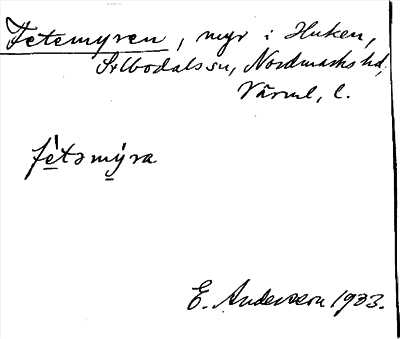 Fetemyren, myr i Huken,
Silbodals sn, Nordmarks hd,
Värml. l.
fètəmýra
E. Andersson 1933.